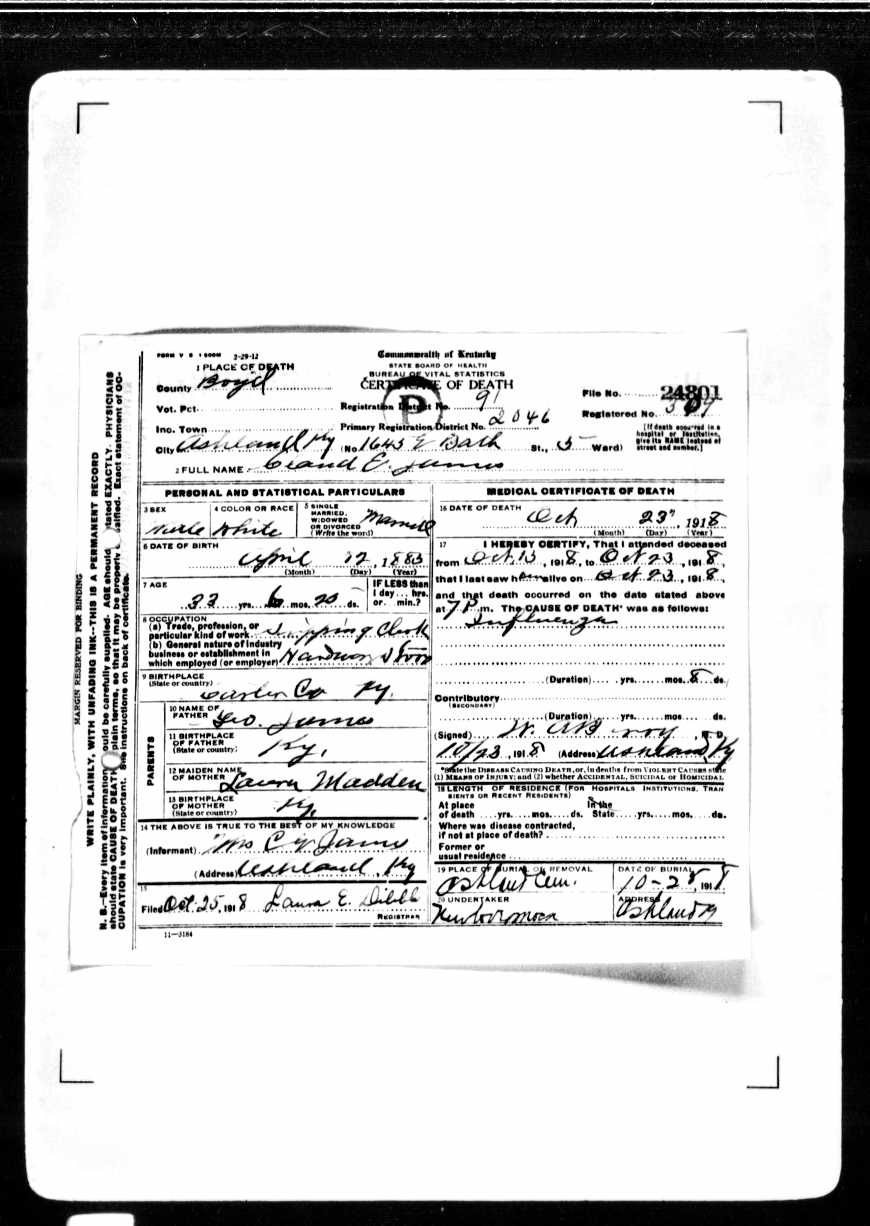 FORM V S 1 500M 2-29-12
Commonwealth of Kentucky
STATE BOARD OF HEALTH
BUREAU OF VITAL STATISTICS
CERTIFICATE OF DEATH
1 PLACE OF DEATH
County Boyd
Vot. Pct.
Inc. Town
City Ashland Ky (No. 1645 E Bath St., 5 Ward)
Registration District No. 91
Primary Registration District No. 2046
File No. 24801
Registered No.
[If death occurred in a hospital or institution, give its NAME instead of street and number.]
2 FULL NAME E. James
PERSONAL AND STATISTICAL PARTICULARS
3 SEX Male
4 COLOR OR RACE White
5 SINGLE MARRIED, WIDOWED OR DIVORCED (Write the word) Married
6 DATE OF BIRTH April 12, 1883
(Month) (Day) (Year)
7 AGE 33 yrs. 6 mos. ds.
IF LESS than 1 day... hrs. or... min.?
8 OCCUPATION
(a) Trade, profession, or particular kind of work Shipping Clerk
(b) General nature of industry business or establishment in which employed (or employer)
9 BIRTHPLACE (State or country) Carter Co Ky.
PARENTS
10 NAME OF FATHER Geo. James
11 BIRTHPLACE OF FATHER (State or country) Ky,
12 MAIDEN NAME OF MOTHER Laura Madden
13 BIRTHPLACE OF MOTHER (State or country) Ky.
14 THE ABOVE IS TRUE TO THE BEST OF MY KNOWLEDGE
(Informant) Mrs C E James
(Address) Ashland, Ky
15
Filed Oct. 25, 1918 Laura E. Dibble
REGISTRAR
11—3184
MEDICAL CERTIFICATE OF DEATH
16 DATE OF DEATH Oct 23, 1918
(Month) (Day) (Year)
17 I HEREBY CERTIFY, That I attended deceased
from Oct. 15, 1918, to Oct 23, 1918,
that I last saw him alive on Oct 23, 1918,
and that death occurred on the date stated above
at 7 P m. The CAUSE OF DEATH* was as follows:
Influenza
(Duration) yrs. mos. 8 ds.
Contributory
(SECONDARY)
(Duration) yrs. mos. ds.
(Signed) M. D.
10/23, 1918 (Address) Ashland, Ky
*State the DISEASE CAUSING DEATH, or, in deaths from VIOLENT CAUSES state (1) MEANS OF INJURY; and (2) whether ACCIDENTAL, SUICIDAL or HOMICIDAL
18 LENGTH OF RESIDENCE (FOR HOSPITALS INSTITUTIONS, TRANSIENTS OR RECENT RESIDENTS)
At place of death yrs. mos. ds. In the State yrs. mos. ds.
Where was disease contracted, if not at place of death?
Former or usual residence
19 PLACE OF BURIAL OR REMOVAL Ashland Cem.
DATE OF BURIAL 10-25, 1918
20 UNDERTAKER
ADDRESS Ashland Ky
MARGIN RESERVED FOR BINDING
WRITE PLAINLY, WITH UNFADING INK--THIS IS A PERMANENT RECORD
N. B.—Every item of information should be carefully supplied. AGE should be stated EXACTLY. PHYSICIANS
should state CAUSE OF DEATH in plain terms, so that it may be properly classified. Exact statement of OC-
CUPATION is very important. See instructions on back of certificate.